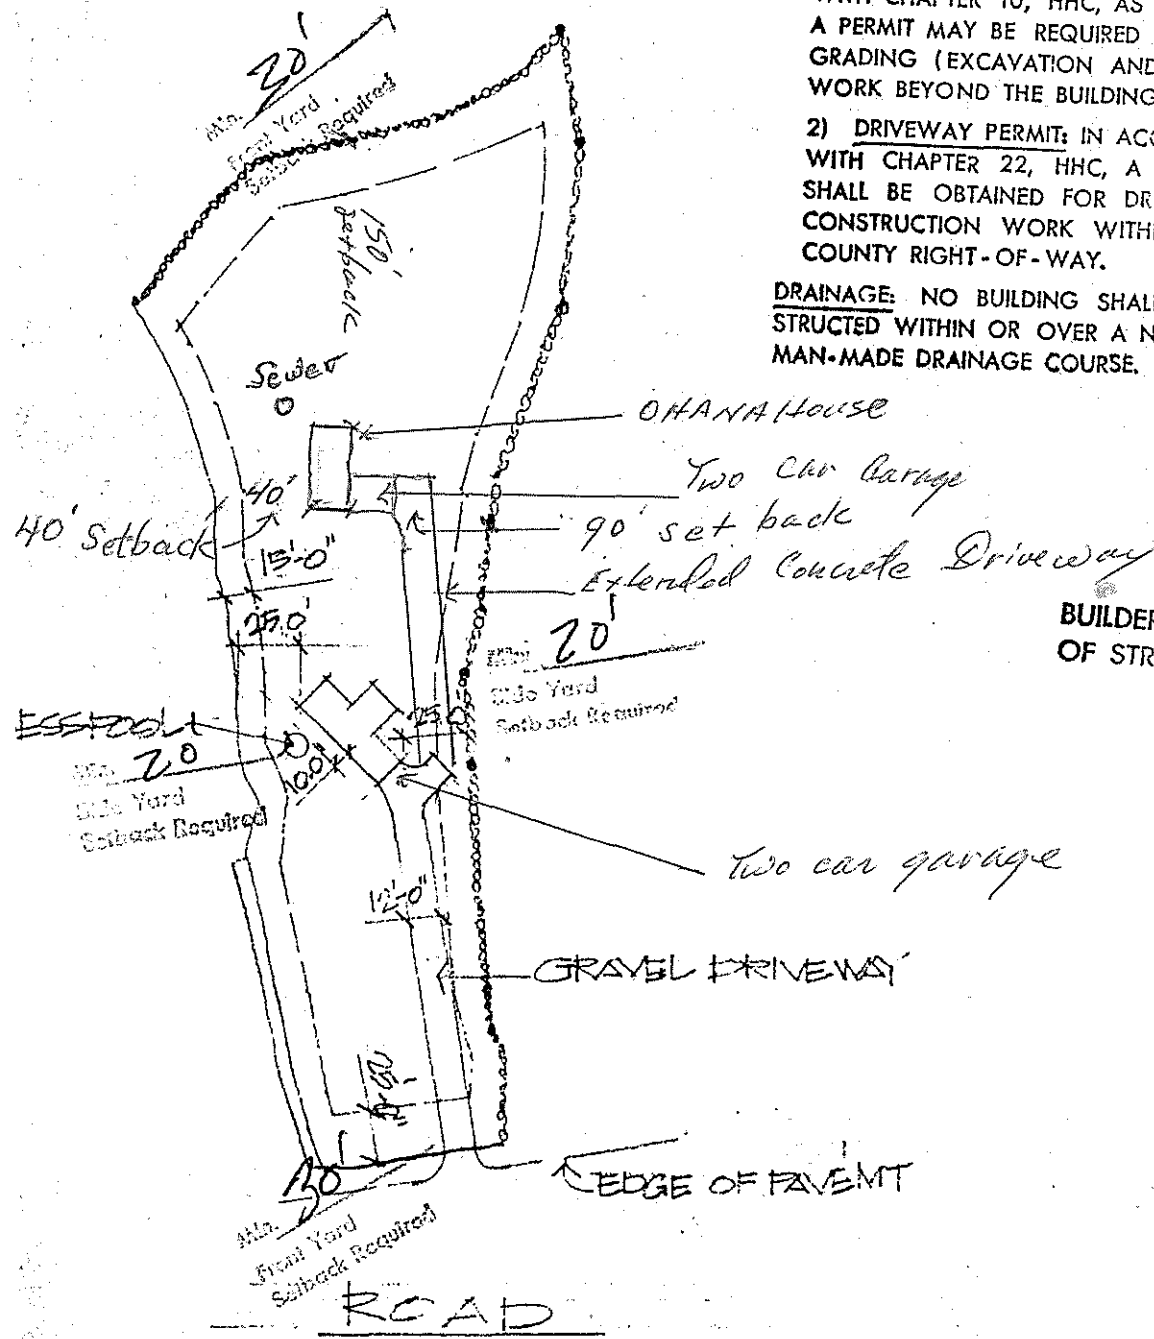 WITH CHAPTER 10, HHC, AS
A PERMIT MAY BE REQUIRED
GRADING (EXCAVATION AND
WORK BEYOND THE BUILDING
2) DRIVEWAY PERMIT: IN ACC
WITH CHAPTER 22, HHC, A
SHALL BE OBTAINED FOR DR
CONSTRUCTION WORK WITHI
COUNTY RIGHT-OF-WAY.
DRAINAGE: NO BUILDING SHALL
STRUCTED WITHIN OR OVER A N
MAN-MADE DRAINAGE COURSE.
Min. 30'
Front Yard
Setback Required
150'
setback
Sewer
OHANA House
Two Car Garage
40'
40' Setback
90' set back
Extended Concrete Driveway
15'-0"
25.0'
BUILDER
OF STR
Min. 20'
Side Yard
Setback Required
ESSPOOL
25.0
Min. 20
Side Yard
Setback Required
10.0"
Two car garage
12'-0"
GRAVEL DRIVEWAY
EDGE OF PAVEM'T
Min. 30'
Front Yard
Setback Required
ROAD